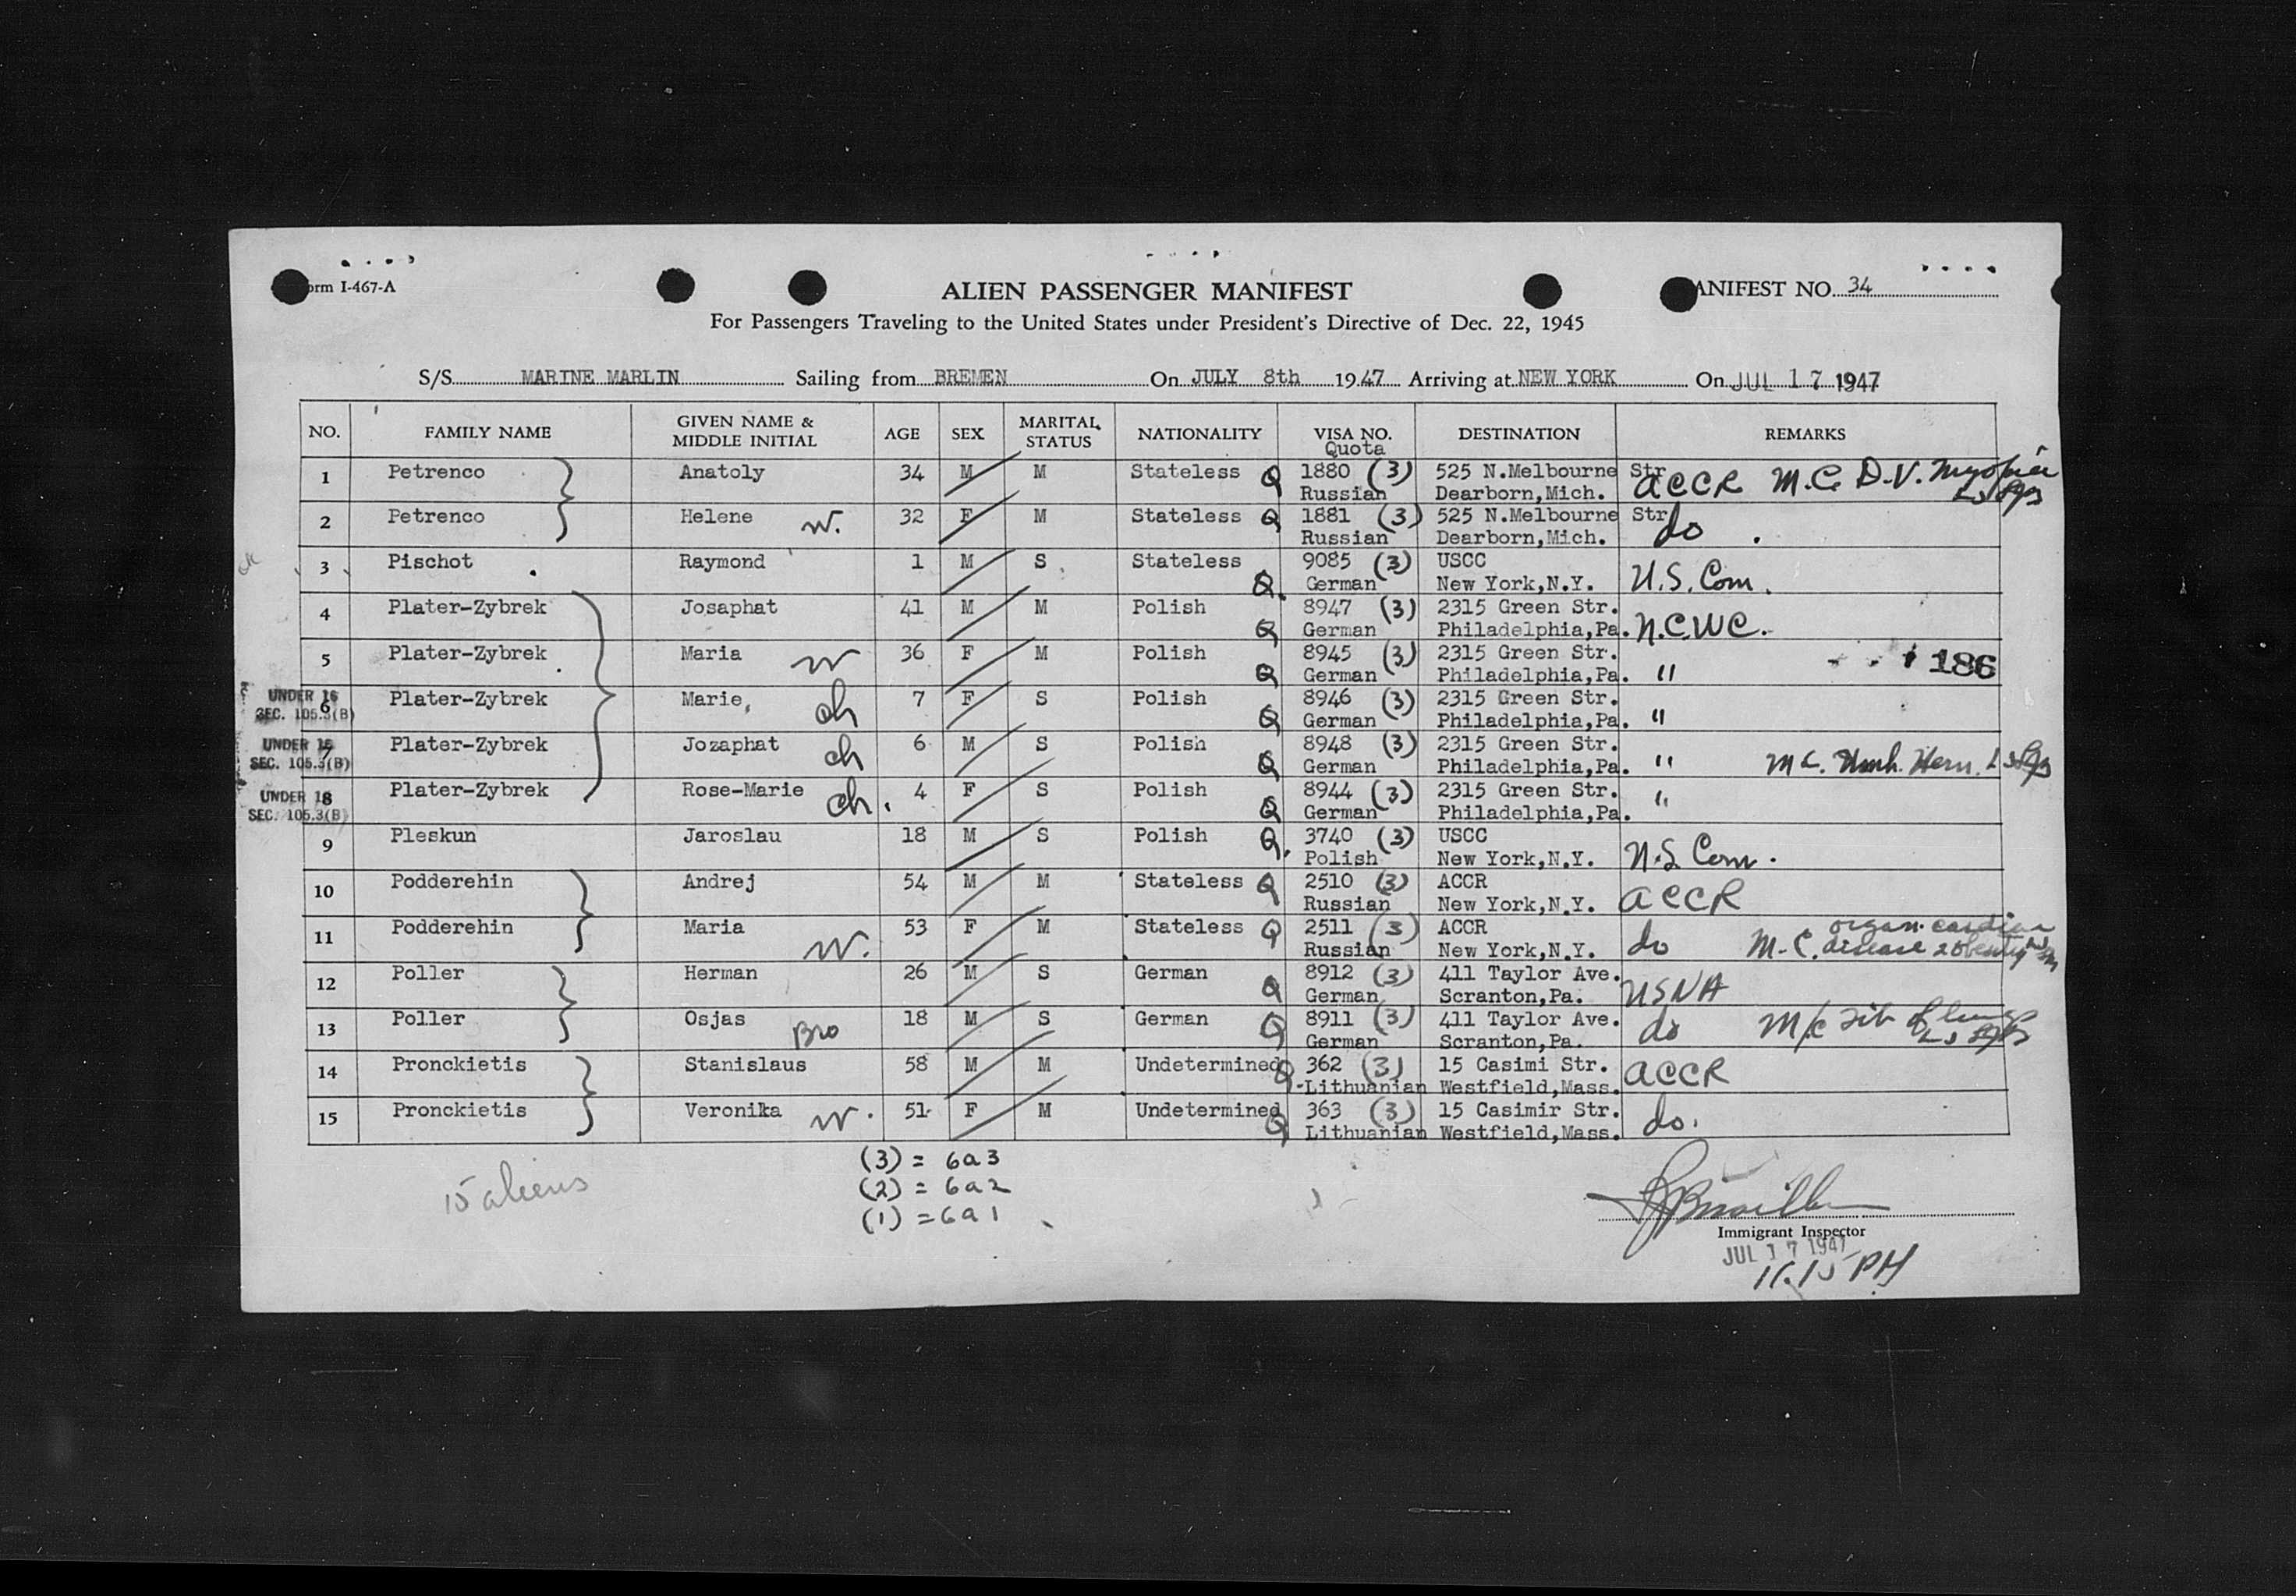 Form I-467-A
ALIEN PASSENGER MANIFEST
MANIFEST NO. 34
For Passengers Traveling to the United States under President's Directive of Dec. 22, 1945
S/S MARINE MARLIN Sailing from BREMEN On JULY 8th 1947 Arriving at NEW YORK On JUL 17 1947
NO. FAMILY NAME GIVEN NAME & MIDDLE INITIAL AGE SEX MARITAL STATUS NATIONALITY VISA NO. Quota DESTINATION REMARKS
1 Petrenco Anatoly 34 M M Stateless Q 1880 (3) Russian 525 N.Melbourne Str Dearborn,Mich. ACCR M.C. D.V. Myopia
2 Petrenco Helene W. 32 F M Stateless Q 1881 (3) Russian 525 N.Melbourne Str Dearborn,Mich. do .
3 Pischot Raymond 1 M S Stateless Q. 9085 (3) German USCC New York,N.Y. U.S. Com.
4 Plater-Zybrek Josaphat 41 M M Polish Q 8947 (3) German 2315 Green Str. Philadelphia,Pa. N.C.W.C.
5 Plater-Zybrek Maria W 36 F M Polish Q 8945 (3) German 2315 Green Str. Philadelphia,Pa. " 186
UNDER 16 SEC. 105.3(B) 6 Plater-Zybrek Marie, ch 7 F S Polish Q 8946 (3) German 2315 Green Str. Philadelphia,Pa. "
UNDER 16 SEC. 105.3(B) 7 Plater-Zybrek Jozaphat ch 6 M S Polish Q 8948 (3) German 2315 Green Str. Philadelphia,Pa. " M C. Umb. Hern.
UNDER 16 SEC. 105.3(B) 8 Plater-Zybrek Rose-Marie ch. 4 F S Polish Q 8944 (3) German 2315 Green Str. Philadelphia,Pa. "
9 Pleskun Jaroslau 18 M S Polish Q. 3740 (3) Polish USCC New York,N.Y. U.S. Com.
10 Podderehin Andrej 54 M M Stateless Q 2510 (3) Russian ACCR New York,N.Y. ACCR
11 Podderehin Maria W. 53 F M Stateless Q 2511 (3) Russian ACCR New York,N.Y. do M.C. organ. cardiac disease
12 Poller Herman 26 M S German Q 8912 (3) German 411 Taylor Ave. Scranton,Pa. USNA
13 Poller Osjas Bro 18 M S German Q 8911 (3) German 411 Taylor Ave. Scranton,Pa. do M/C of lungs
14 Pronckietis Stanislaus 58 M M Undetermined Q 362 (3) -Lithuanian 15 Casimi Str. Westfield,Mass. ACCR
15 Pronckietis Veronika W. 51 F M Undetermined Q 363 (3) Lithuanian 15 Casimir Str. Westfield,Mass. do.
15 aliens
(3) = 6a3
(2) = 6a2
(1) = 6a1
Immigrant Inspector
JUL 17 1947
11.15 PM